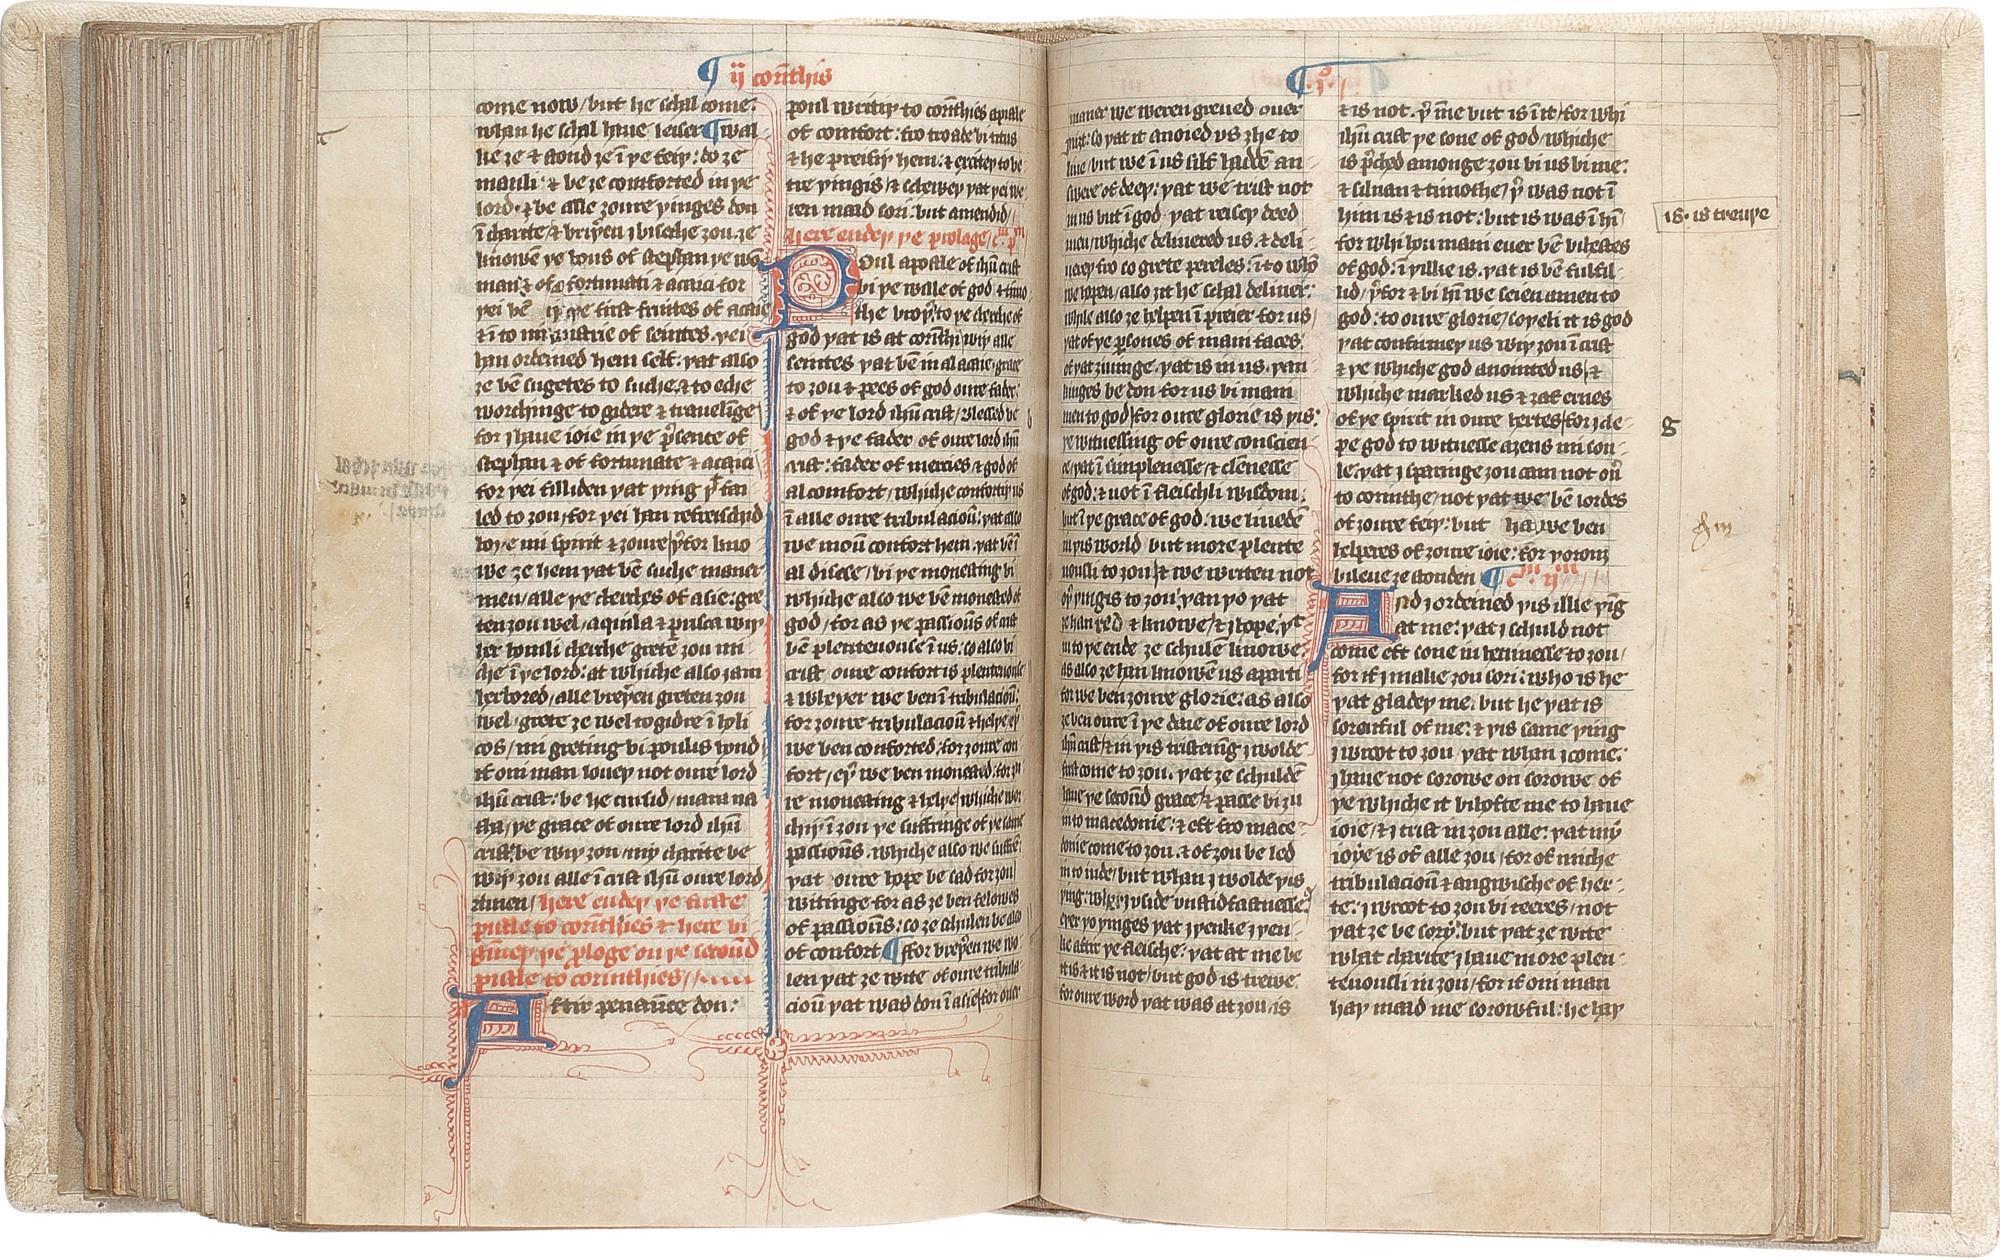 ¶ ij corīthis
come now / but he schal come:
whan he schal haue leiser ¶ wal
ke ze & stond ze ī ye feiy: do ze
manli: & be ze comforted in ye
lord · & be alle zoure yinges don
ī charite / & briyen j biseche zou · ze
knowen ye hous of stephan ye wo
man & of fortunati & acaici for
yei bē ye first fruites of acaie
& ī to mynistrie of seintes · yei
han ordeined hem self: yat also
ze bē sugetes to suche · & to eche
worchinge to gidere & traueilīge
for j haue ioie in ye p̄sence of
stephan & of fortunate & acaici
for yei filliden yat ying yt fai
led to zou / for yei han refreischid
boye mi spirit & zoure yfor kno
we ze hem yat bē suche maner
men / alle ye chirches of asie: gre
ten zou wel / aquila & prisca wiy
her homli chirche grete zou mi
che ī ye lord: at whiche also j am
herbored / alle breyen greten zou
wel · grete ze wel to gidre ī holi
cos / mi greting bi poulis hond
if oni man louey not oure lord
ihū crist: be he cursid / mara na
tha / ye grace of oure lord ihū
crist: be wiy zou / my charite be
wiy zou alle ī crist ihū oure lord
Amen / here endey ye firste
pistle to corīthies & here bi
gīney ye ploge on ye secoūd
pistle to corinthies /
Aftir penaūce don:
poul writiy to corīthies a pistle
of comfort: fro troade bi titus
& he preisiy hem: & excitey to be
tre yingis / & schewey yat yei we
ren maad sori: but amendid /
here endey ye prolage / c · p̄m
Poul apostle of ihū crist
bi ye wille of god · & timo
the broyer to ye chirche of
god yat is at corīthi wiy alle
seintes yat bē in al acaie · grace
to zou & pees of god oure fader:
& of ye lord ihū crist / blessed be
god & ye fader of oure lord ihū
crist: fader of mercies & god of
al comfort / whiche confortiy us
ī alle oure tribulacioū: yat also
we moū confort hem · yat bē ī
al disese / bi ye monesting bi
whiche also we bē monested of
god / for as ye passiouns of crist
bē plenteuouse ī us: so also bi
crist oure confort is plenteuouse
& wheyer we ben ī tribulacioū:
for zoure tribulacioū & helye ey
we ben conforted: for zoure con
fort / ey we ben monested: for zou
re monesting & helye whiche wor
chiy ī zou ye suffringe of ye same
passiouns · whiche also we suffre:
yat oure hope be sad for zou
witinge for as ze ben felowes
of passiouns: so ze schulen be also
of confort ¶ for breyen we wo
len yat ze wite of oure tribula
cioū yat was don ī asie / for ouer
¶ · j ·
maner we weren greued ouer
mizt: so yat it anoied us zhe to
liue / but we ī us silf hadden an
swere of deey: yat we trist not
in us but ī god yat reisey deed
men / whiche deliuered us · & deli
uerey fro so grete pereles: ī to who
we hopen / also zit he schal deliuer:
while also ze helpen ī preier for us /
yat of ye psones of mani faces:
of yat ziuinge · yat is in us · yan
kinges be don for us bi mani
men to god / for oure glorie is yis:
ye witnessing of oure conscien
ce / yat ī simplenesse & clēnesse
of god: & not ī fleischli wisdom:
but ī ye grace of god: we liuedē
in yis world but more plente
uousli to zou / & we writen not
oy yingis to zou: yan yo yat
ze han red & knowe / & j hope · yt
in to ye ende ze schulen knowe:
as also ze han knowen us aparti
for we ben zoure glorie: as also
ze ben oure ī ye daie of oure lord
ihū crist / & in yis tristening j wolde
first come to zou · yat ze schuldē
haue ye secoūd grace / & passe bi zou
in to macedonie: & eft fro mace
donie come to zou · & of zou be led
in to iude / but whan j wolde yis
ying: wheyer j uside unstidfastnesse:
eyer yo yinges yat j yenke j yen
ke aftir ye fleische: yat at me be
it is & it is not / but god is trewe
for oure word yat was at zou / is
& is not · yme but is ī it / for whi
ihū crist ye sone of god / whiche
is pched amonge zou bi us bi me:
& siluan & timothe / y was not ī
him is & is not: but is was ī hī /
for whi hou mani euer bē bihestes
of god: ī yilke is · yat is bē fulfil
lid / yfor & bi hī we seien amen to
god: to oure glorie / soyeli it is god
yat confermey us wiy zou ī crist
& ye whiche god anointed us / &
whiche marked us & zaf ernes
of ye spirit in oure hertes / for j cle
pe god to witnesse azens mi sou
le: yat j sparinge zou cam not ouer
to corinthe / not yat we bē lordes
of zoure feiy: but we ben
helperes of zoure ioie: for yorouz
bileue ze stonden ¶ cm · ijm
And j ordeined yis ilke yīg
at me: yat j schuld not
come eft sone in heuinesse to zou /
for if j make zou sori: who is he
yat gladey me: but he yat is
sorowful of me: & yis same ying
j wroot to zou yat whan j come:
j haue not sorowe on sorowe of
ye whiche it bihofte me to haue
ioie / & j trist in zou alle: yat my
ioye is of alle zou / for of miche
tribulacioū & angwische of her
te: j wroot to zou bi teeres / not
yat ze be sory: but yat ze wite
what charite j haue more plen
teuousli in zou / for if oni man
hay maad me sorowful: he hay
is · is treuye
g